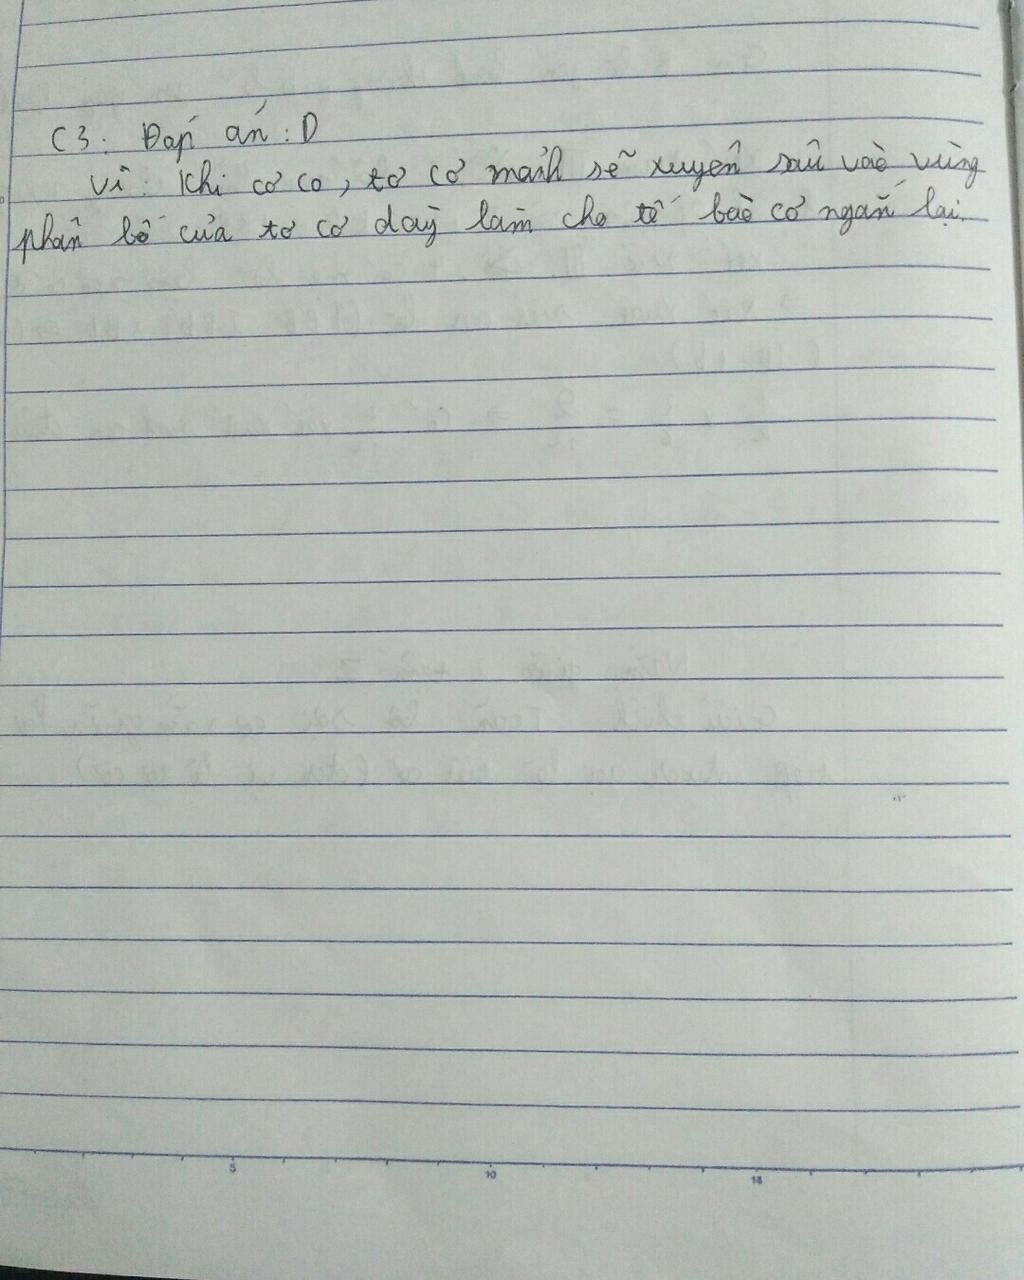 C3: Đáp án: D
Vì: Khi cơ co, tơ cơ mảnh sẽ xuyên sâu vào vùng
phân bố của tơ cơ dày làm cho tế bào cơ ngắn lại.
5 10 15